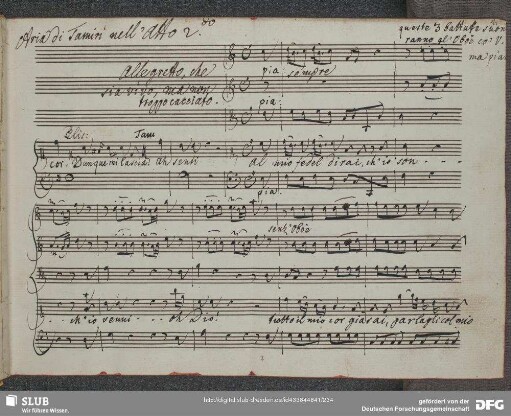 Aria di Tamiri nell'Atto 2.do
queste 3 battute suon
ranno gl'Oboè co' V.
ma pian
Allegretto, che
sia vivo, ma non
troppo cacciato.
pia sempre
pia:
Elis: Tam
cor. Dunque mi lascia? Ah senti
al mio fedel dirai, ch'io son - - - -
pia.
senz'Oboè
- - ch'io venni - - oh Dio!
tutto il mio cor già sai, parlagli col mio
1
SLUB
Wir führen Wissen.
http://digital.slub-dresden.de/id433844841/234
gefördert von der
Deutschen Forschungsgemeinschaft
DFG